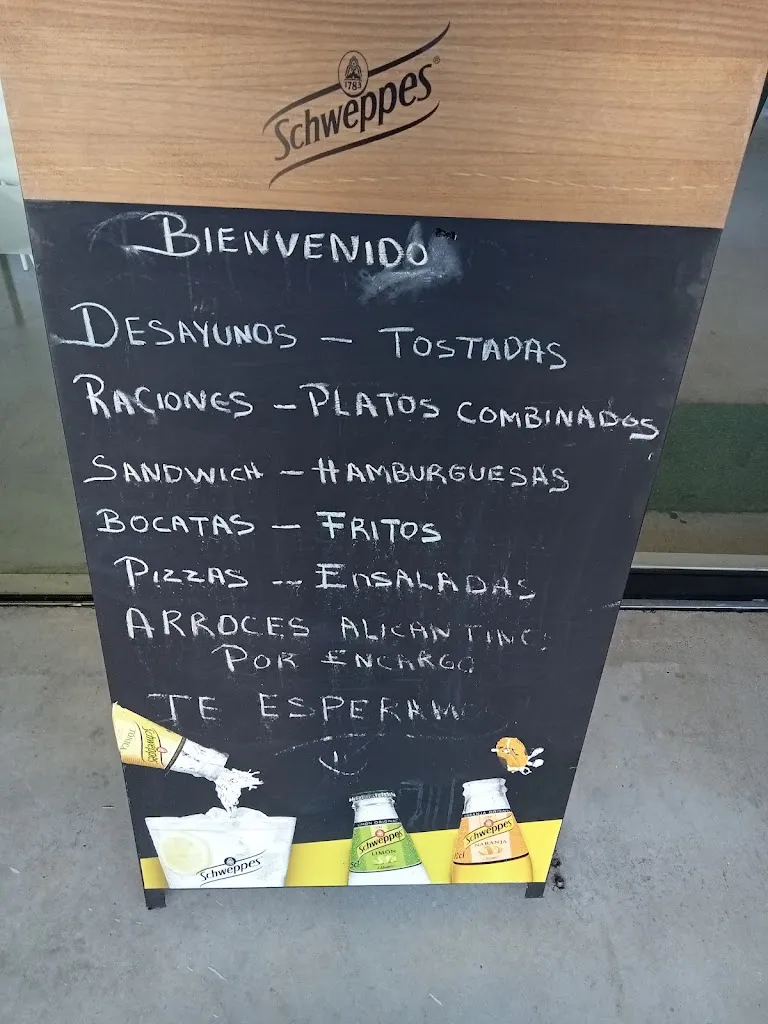 1783
Schweppes
BIENVENIDO
DESAYUNOS - TOSTADAS
RACIONES - PLATOS COMBINADOS
SANDWICH - HAMBURGUESAS
BOCATAS - FRITOS
PIZZAS -- ENSALADAS
ARROCES
POR ENCARGO
TE
TONICA
Schweppes
Schweppes
Schweppes
LIMON
Schweppes
NARANJA